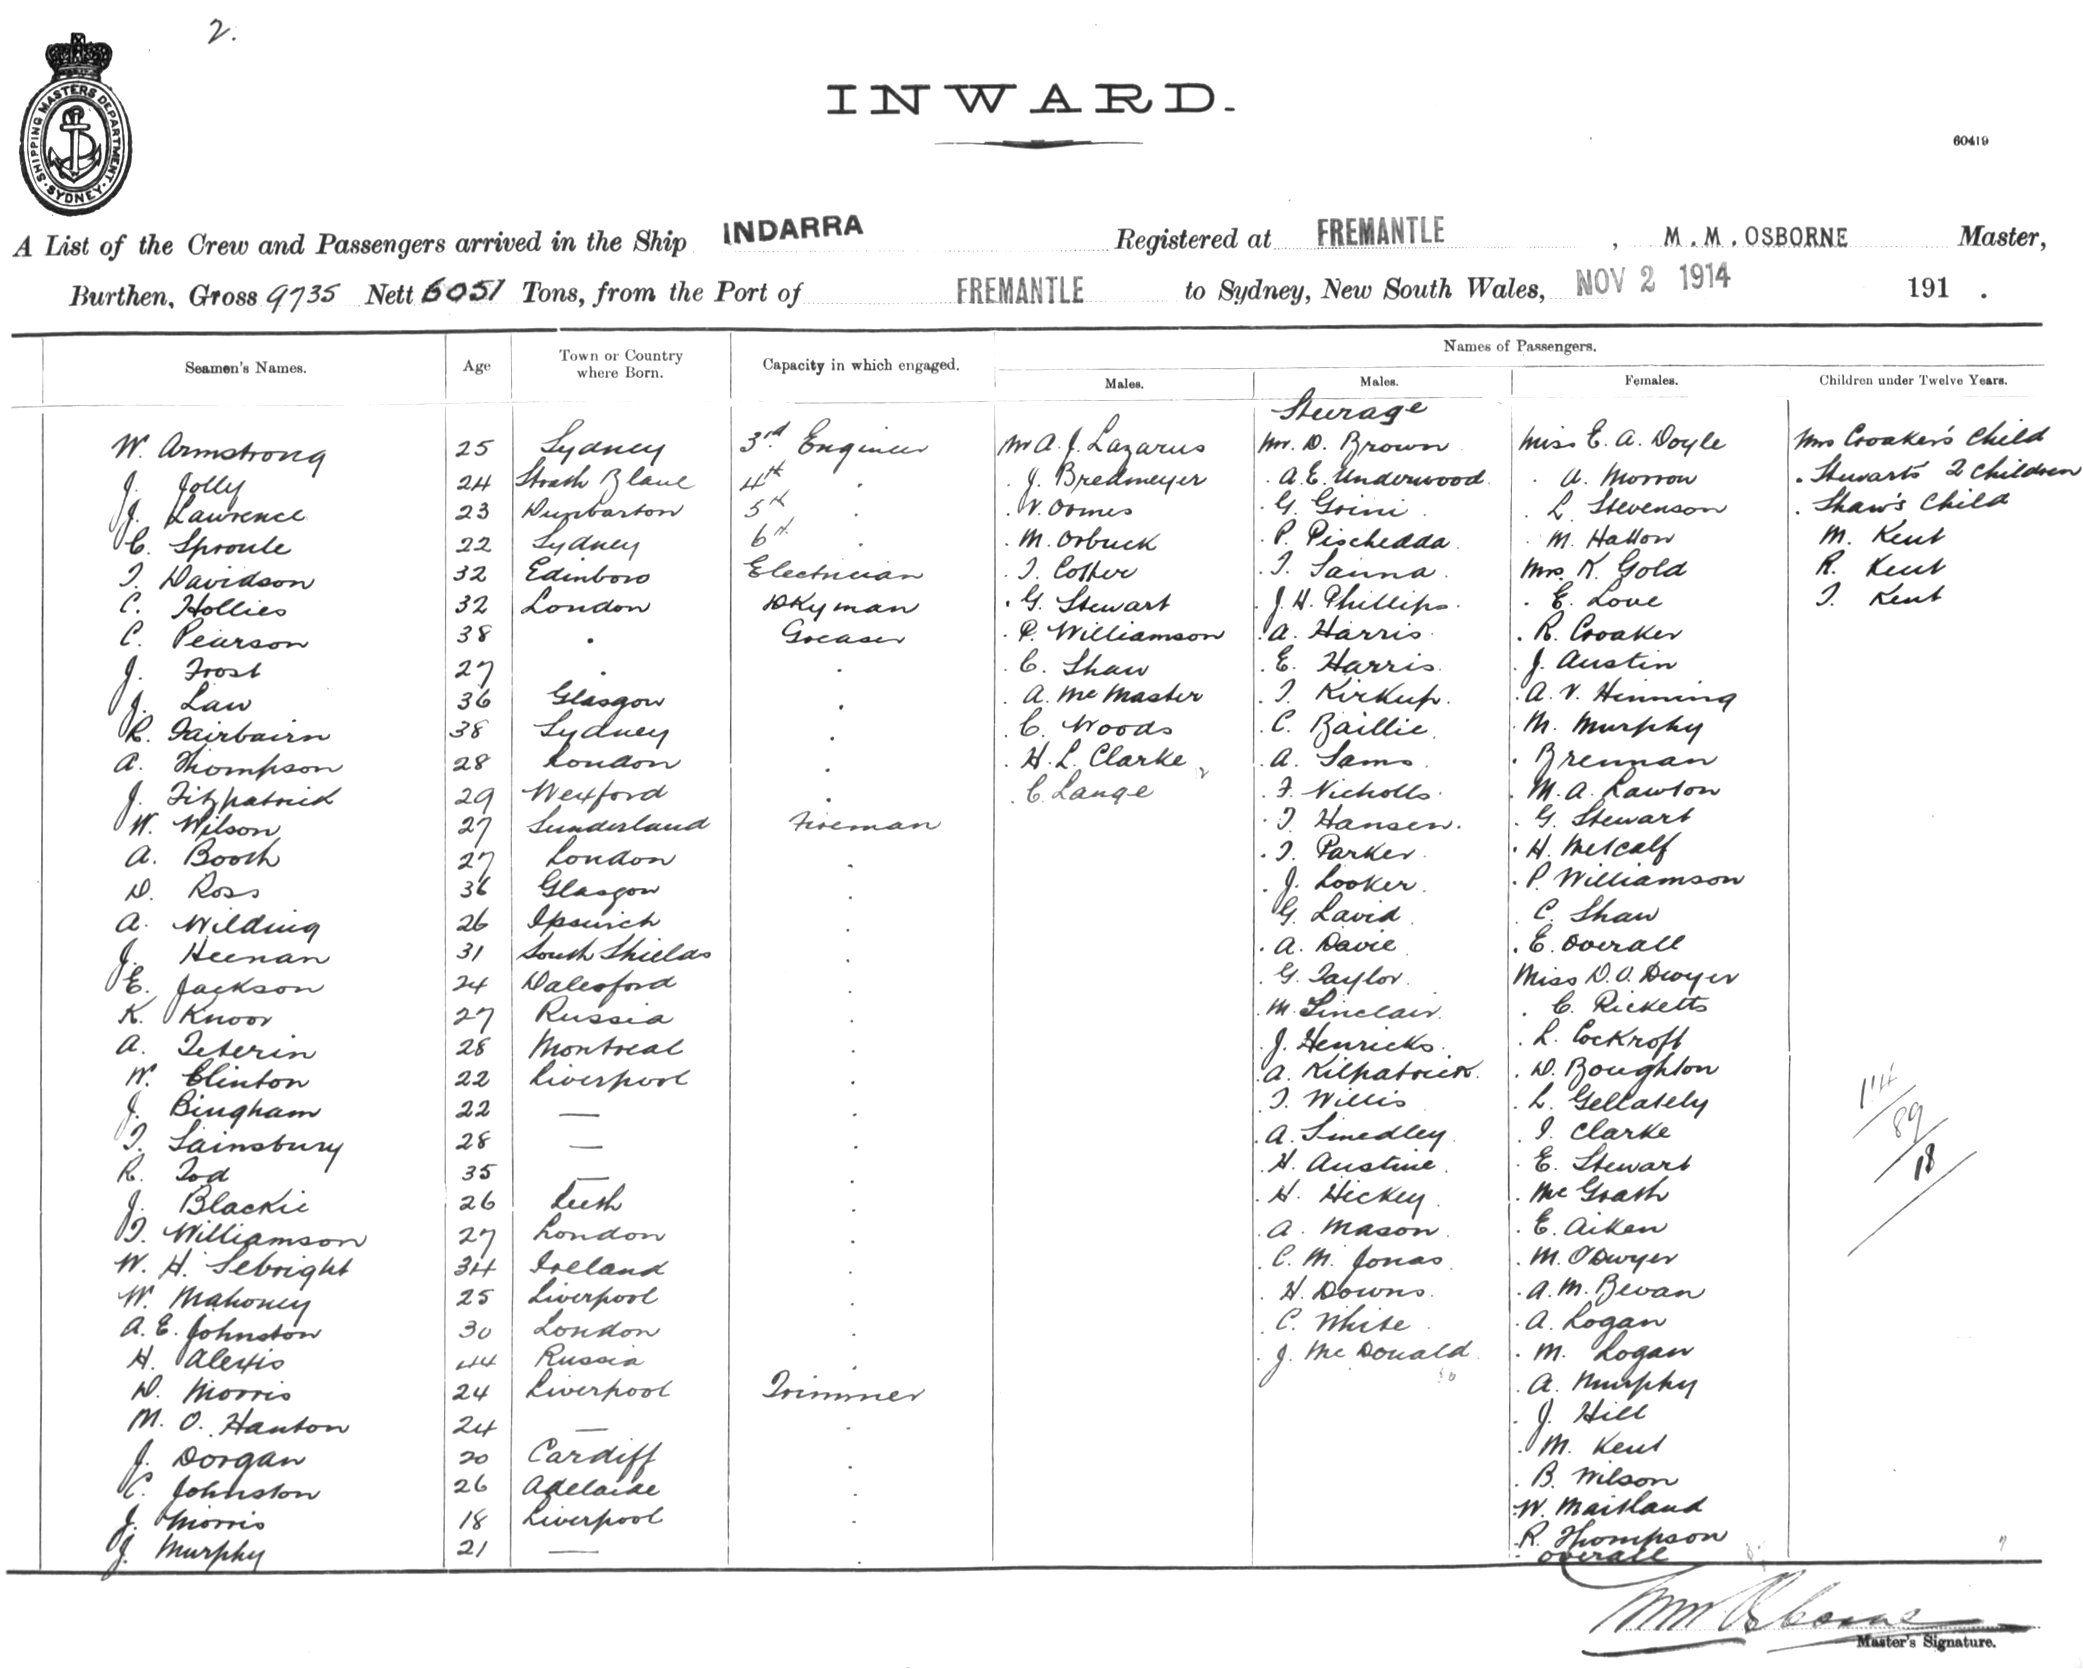 2.
SHIPPING MASTERS DEPARTMENT. SYDNEY.
INWARD.
60419
A List of the Crew and Passengers arrived in the Ship INDARRA Registered at FREMANTLE, M. M. OSBORNE Master,
Burthen, Gross 9735 Nett 6051 Tons, from the Port of FREMANTLE to Sydney, New South Wales, NOV 2 1914 191 .
Seamen's Names. Age Town or Country where Born. Capacity in which engaged. Names of Passengers.
Males. Males. Females. Children under Twelve Years.
Sturage
W. Armstrong 25 Sydney 3rd Engineer Mr A. J. Lazarus Mr. D. Brown Miss E. A. Doyle Mrs Croaker's Child
J. Jolly 24 Strath Blane 4th . . J. Bredmeyer . A. E. Underwood . A. Morrow . Stewarts 2 Children
J. Lawrence 23 Dunbarton 5th . . V. Oomes . G. Grini . L. Stevenson . Shaw's Child
C. Sproule 22 Sydney 6th . . M. Orbuck . P. Pischedda . M. Hatton M. Kent
T. Davidson 32 Edinboro Electrician . T. Cotter . T. Sanna Mrs. K. Gold R. Kent
C. Hollies 32 London DKyman . G. Stewart . J. H. Phillips . E. Love T. Kent
C. Pearson 38 . Greaser . P. Williamson . A. Harris . R. Croaker
J. Frost 27 . . . C. Shaw . E. Harris . J. Austin
J. Law 36 Glasgow . . A. McMaster . T. Kirkup . A. V. Henning
R. Fairbairn 38 Sydney . . C. Woods . C. Baillie . M. Murphy
A. Thompson 28 London . . H. L. Clarke . A. Sams . Brennan
J. Fitzpatrick 29 Wexford . . C. Lange . F. Nicholls . M. A. Lawton
W. Wilson 27 Sunderland Fireman . T. Hansen . G. Stewart
A. Booth 27 London . . T. Parker . H. Metcalf
D. Ross 36 Glasgow . . J. Looker . P. Williamson
A. Wilding 26 Ipswich . . G. Lavid . C. Shaw
J. Heenan 31 South Shields . . A. Davie . E. Overall
E. Jackson 24 Dalesford . . G. Taylor Miss D. O. Dwyer
K. Knoor 27 Russia . . M. Sinclair . C. Ricketts
A. Teterin 28 Montreal . . J. Henricks . L. Cockroft
W. Clinton 22 Liverpool . . A. Kilpatrick . D. Boughton
J. Bingham 22 — . . T. Willis . L. Gellately
T. Sainsbury 28 — . . A. Smedley . I. Clarke
R. Tod 35 — . . H. Austine . E. Stewart
J. Blackie 26 Leith . . H. Hickey . McGrath
T. Williamson 27 London . . A. Mason . E. Aiken
W. H. Sebright 34 Ireland . . C. M. Jonas . M. O'Dwyer
W. Mahoney 25 Liverpool . . H. Downs . A. M. Bevan
A. E. Johnston 30 London . . C. White . A. Logan
H. Alexis 44 Russia . . J. McDonald . M. Logan
D. Morris 24 Liverpool Trimmer . A. Murphy
M. O. Hanton 24 — . . J. Hill
J. Dorgan 20 Cardiff . . M. Kent
C. Johnston 26 Adelaide . . B. Wilson
J. Morris 18 Liverpool . . W. Maitland
J. Murphy 21 — . . R. Thompson
. Overall
114/
89/
18/
MM Osborne
Master's Signature.